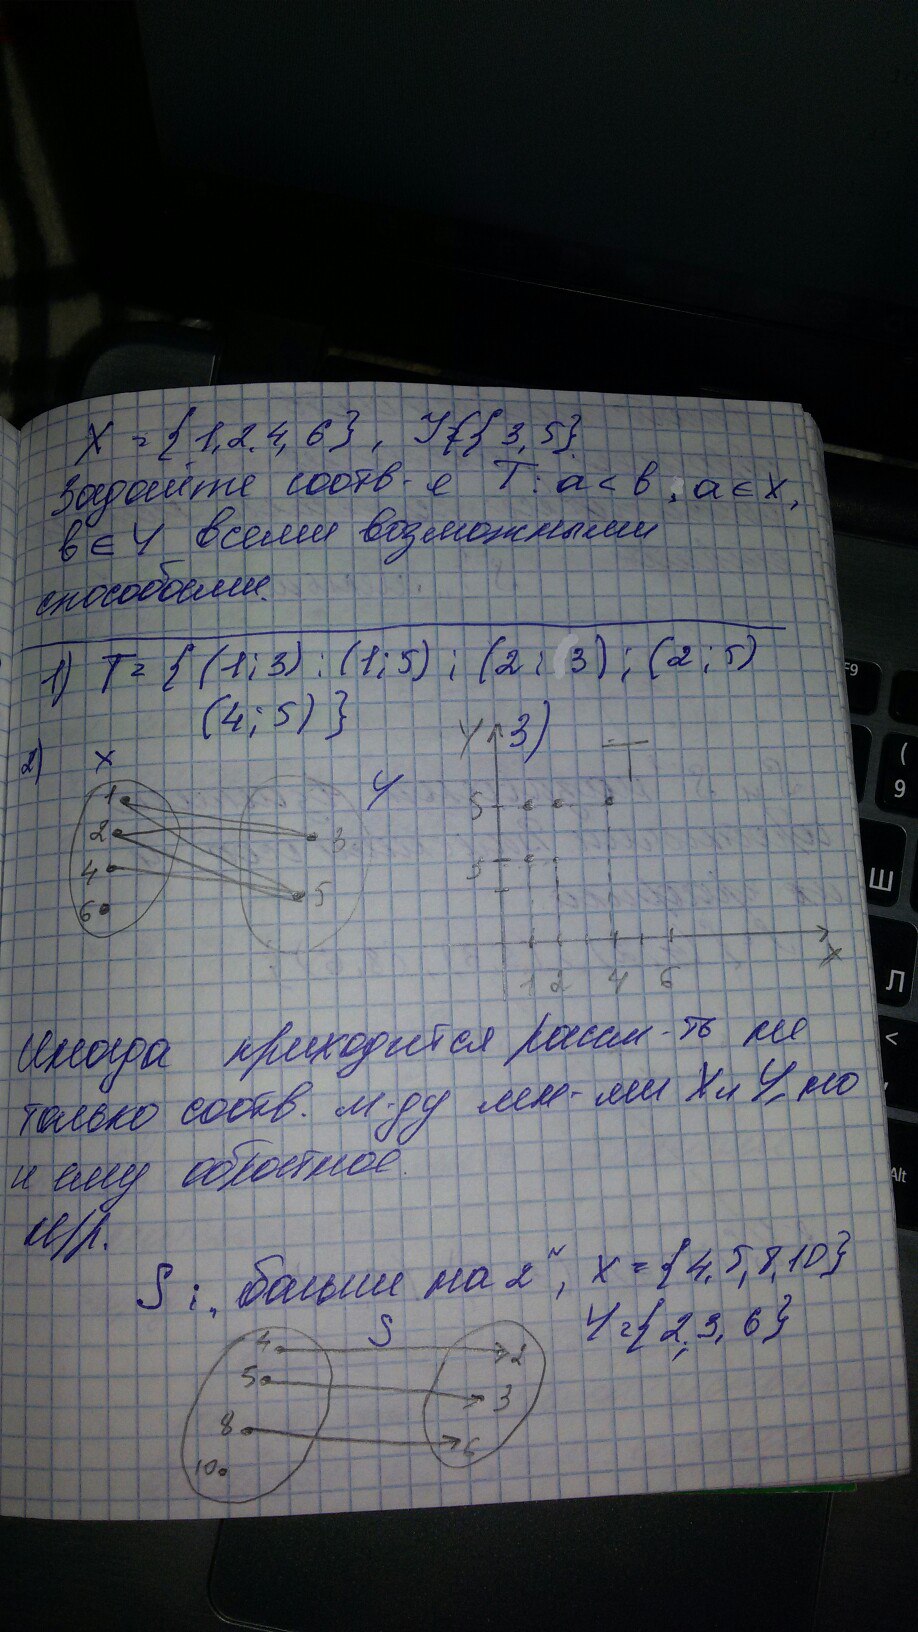 X = {1,2,4,6}, Y={3,5}
Задайте соотв-е T: a < b, a ∈ X,
b ∈ Y всеми возможными
способами.
1) T = {(1;3);(1;5);(2;3);(2;5)
(4;5)}
2) X
Y
1
2
4
6
3
5
3)
Y
T
5
3
1 2 4 6
X
Иногда приходится рассм-ть не
только соотв. м-ду мн-ми X и Y, но
и ему обратное.
Н/р.
S: "больше на 2", X = {4,5,8,10}
Y={2,3,6}
S
4
5
8
10
2
3
6
F9
(
9
Ш
Л
<
Alt